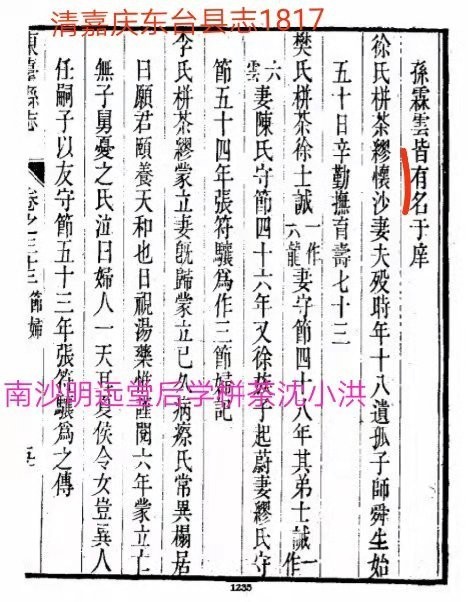 清嘉庆东台县志1817
孫霖雲皆有名于庠
徐氏栟茶繆懷沙妻夫歿時年十八遺孤子師舜生始
五十日辛勤撫育壽七十三
樊氏栟茶徐士誠一作六龍妻守節四十八年其弟士誠一作
六雲妻陳氏守節四十六年又徐族子起蔚妻繆氏守
節五十四年張符驤爲作三節婦記
李氏栟茶繆蒙立妻旣歸蒙立已久病瘵氏常異榻居
日願君頤養天和也日視湯藥惟謹閱六年蒙立亡
無子舅憂之氏泣曰婦人一天耳夏侯令女豈異人
任嗣子以友守節五十三年張符驤爲之傳
東臺縣志 卷之三十三 節婦
南沙明远堂后学栟茶沈小洪
1235